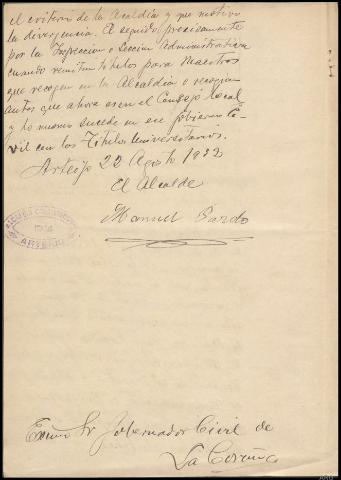 el criterio de la Alcaldía y que motiva
la divergencia. A seguido precisamente
por la Inspeccion o Seccion Administrativa
cuando remiten titulos para Maestros
que recogen en la Alcaldia o recogian
antes que ahora es en el Consejo local
y lo mismo sucede en ese Gobierno Ci-
vil con los Titulos Universitarios.
Arteijo 22 Agosto 1932
El Alcalde
Manuel Pardo
ARTEIJO
Excmo Sr Gobernador Civil de
La Coruña